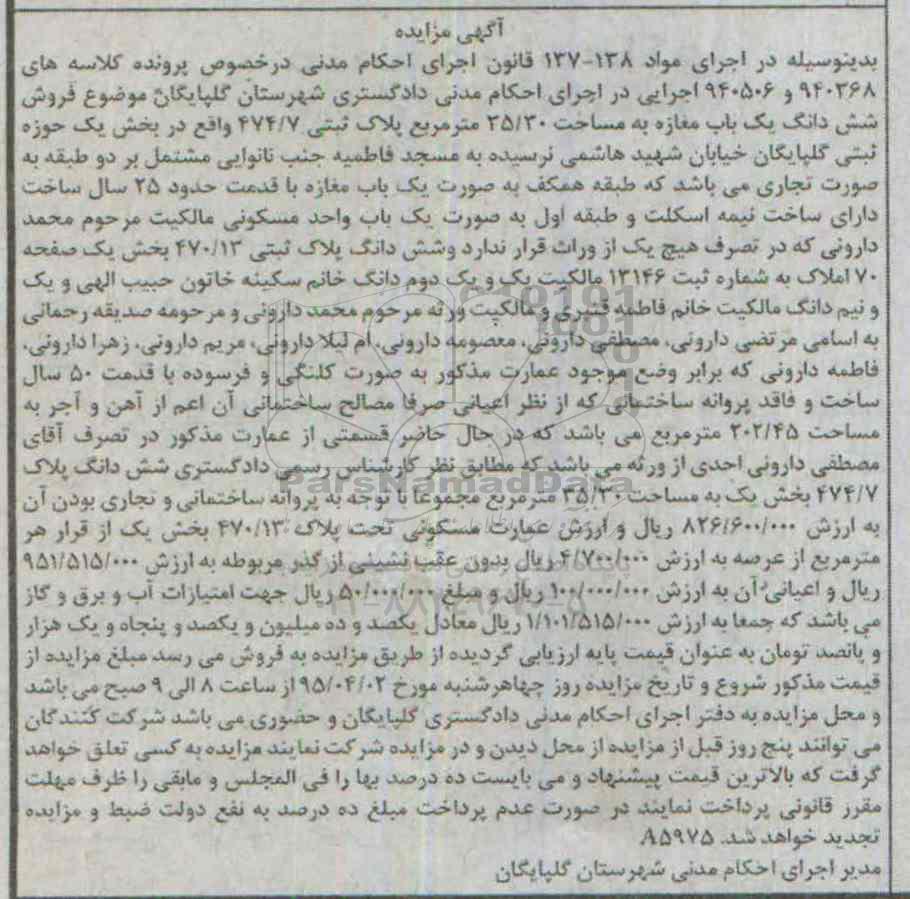 آگهی مزایده
بدینوسیله در اجرای مواد ۱۳۸-۱۳۷ قانون اجرای احکام مدنی درخصوص پرونده کلاسه های
۹۴۰۳۶۸ و ۹۴۰۵۰۶ اجرایی در اجرای احکام مدنی دادگستری شهرستان گلپایگان موضوع فروش
شش دانگ یک باب مغازه به مساحت ۳۵/۳۰ مترمربع پلاک ثبتی ۴۷۴/۷ واقع در بخش یک حوزه
ثبتی گلپایگان خیابان شهید هاشمی نرسیده به مسجد فاطمیه جنب نانوایی مشتمل بر دو طبقه به
صورت تجاری می باشد که طبقه همکف به صورت یک باب مغازه با قدمت حدود ۲۵ سال ساخت
دارای ساخت نیمه اسکلت و طبقه اول به صورت یک باب واحد مسکونی مالکیت مرحوم محمد
دارونی که در تصرف هیچ یک از وراث قرار ندارد وشش دانگ پلاک ثبتی ۴۷۰/۱۳ بخش یک صفحه
۷۰ املاک به شماره ثبت ۱۳۱۴۶ مالکیت یک و یک دوم دانگ خانم سکینه خاتون حبیب الهی و یک
و نیم دانگ مالکیت خانم فاطمه قنبری و مالکیت ورثه مرحوم محمد دارونی و مرحومه صدیقه رحمانی
به اسامی مرتضی دارونی، مصطفی دارونی، معصومه دارونی، ام لیلا دارونی، مریم دارونی، زهرا دارونی،
فاطمه دارونی که برابر وضع موجود عمارت مذکور به صورت کلنگی و فرسوده با قدمت ۵۰ سال
ساخت و فاقد پروانه ساختمانی که از نظر اعیانی صرفا مصالح ساختمانی آن اعم از آهن و آجر به
مساحت ۲۰۲/۴۵ مترمربع می باشد که در حال حاضر قسمتی از عمارت مذکور در تصرف آقای
مصطفی دارونی احدی از ورثه می باشد که مطابق نظر کارشناس رسمی دادگستری شش دانگ پلاک
۴۷۴/۷ بخش یک به مساحت ۳۵/۳۰ مترمربع مجموعا با توجه به پروانه ساختمانی و تجاری بودن آن
به ارزش ۸۲۶/۶۰۰/۰۰۰ ریال و ارزش عمارت مسکونی تحت پلاک ۴۷۰/۱۳ بخش یک از قرار هر
مترمربع از عرصه به ارزش ۴/۷۰۰/۰۰۰ ریال بدون عقب نشینی از گذر مربوطه به ارزش ۹۵۱/۵۱۵/۰۰۰
ریال و اعیانی آن به ارزش ۱۰۰/۰۰۰/۰۰۰ ریال و مبلغ ۵۰/۰۰۰/۰۰۰ ریال جهت امتیازات آب و برق و گاز
می باشد که جمعا به ارزش ۱/۱۰۱/۵۱۵/۰۰۰ ریال معادل یکصد و ده میلیون و یکصد و پنجاه و یک هزار
و پانصد تومان به عنوان قیمت پایه ارزیابی گردیده از طریق مزایده به فروش می رسد مبلغ مزایده از
قیمت مذکور شروع و تاریخ مزایده روز چهاهرشنبه مورخ ۹۵/۰۴/۰۲ از ساعت ۸ الی ۹ صبح می باشد
و محل مزایده به دفتر اجرای احکام مدنی دادگستری گلپایگان و حضوری می باشد شرکت کنندگان
می توانند پنج روز قبل از مزایده از محل دیدن و در مزایده شرکت نمایند مزایده به کسی تعلق خواهد
گرفت که بالاترین قیمت پیشنهاد و می بایست ده درصد بها را فی المجلس و مابقی را ظرف مهلت
مقرر قانونی پرداخت نمایند در صورت عدم پرداخت مبلغ ده درصد به نفع دولت ضبط و مزایده
تجدید خواهد شد. A۵۹۷۵
مدیر اجرای احکام مدنی شهرستان گلپایگان
ParsNamadData